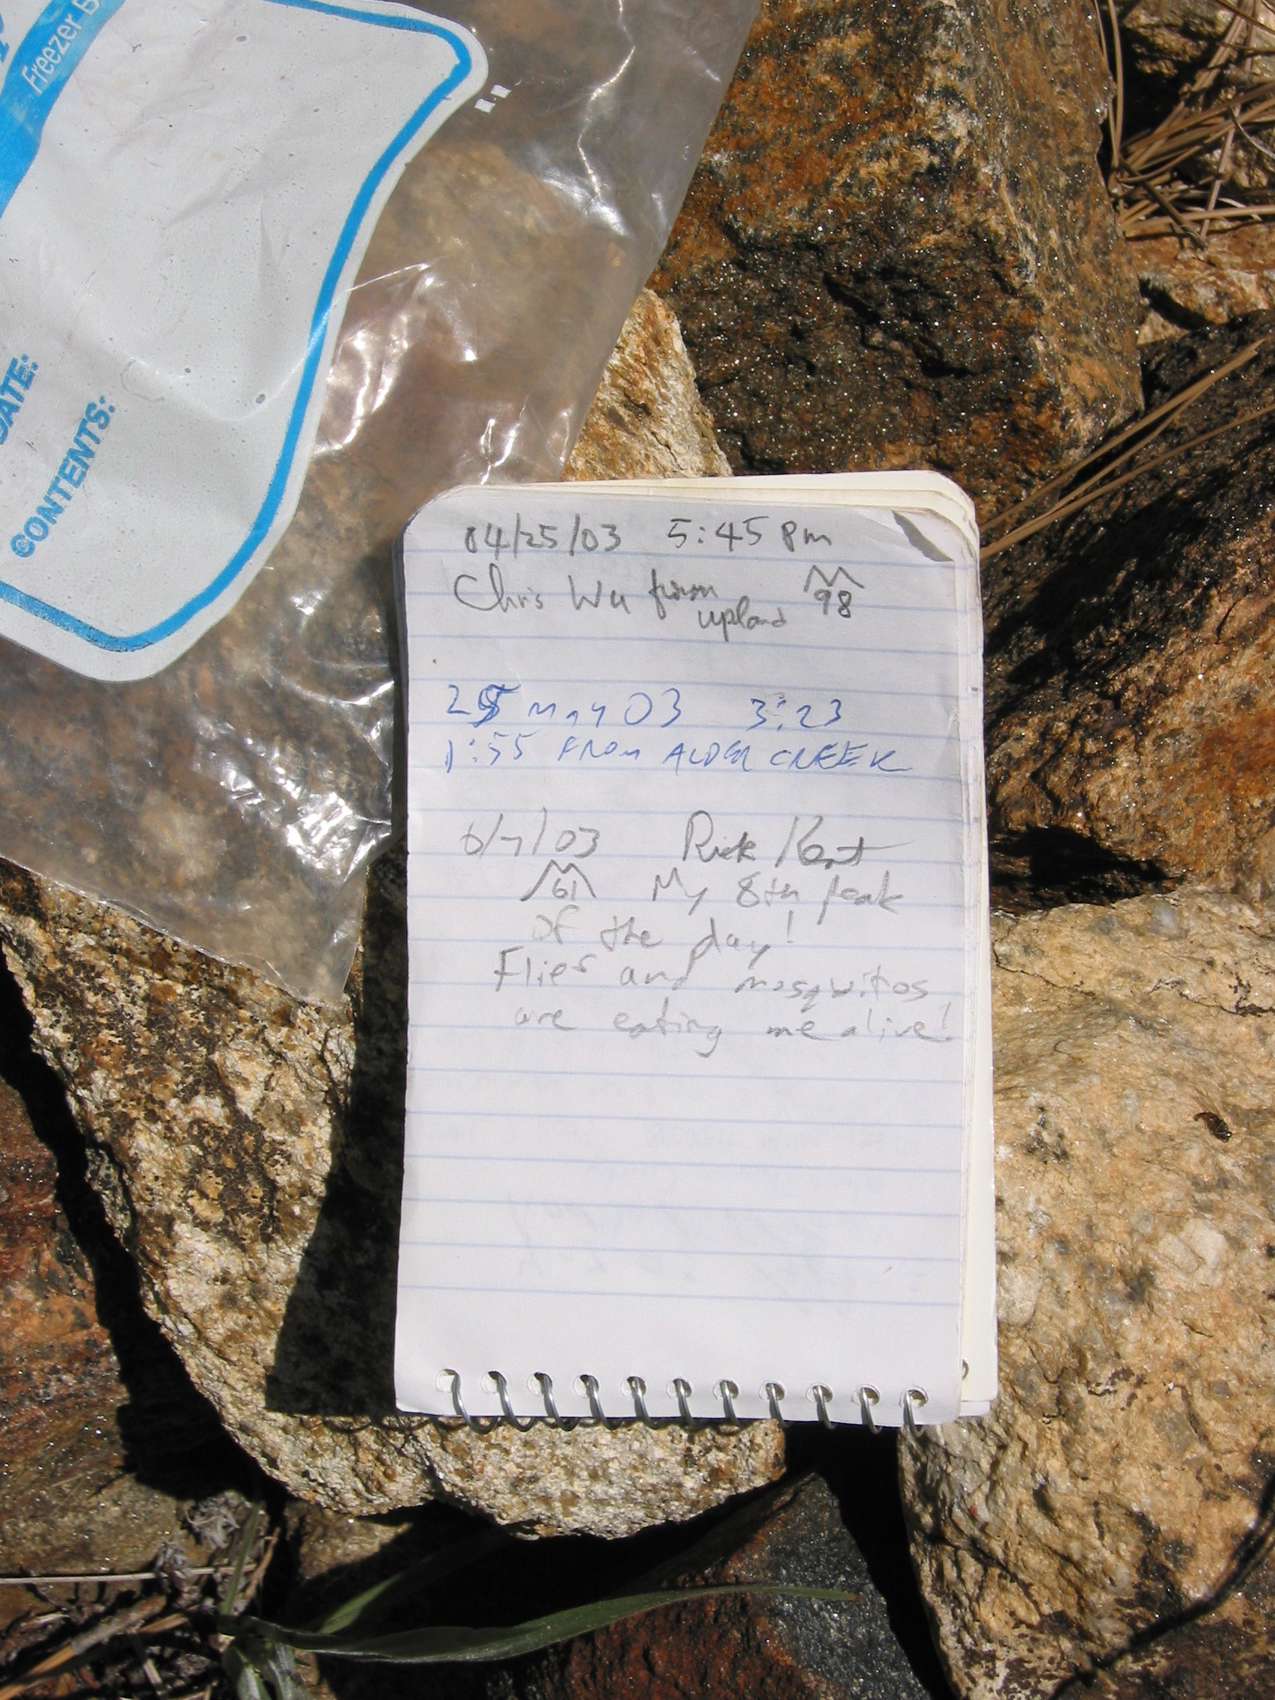 Freezer B
DATE:
CONTENTS:
04/25/03 5:45 pm
Chris Wu from upland 98
25 may 03 3:23
1:55 FROM ALDER CREEK
6/7/03 Rick Kent
61 My 8th peak
of the day!
Flies and mosquitos
are eating me alive!